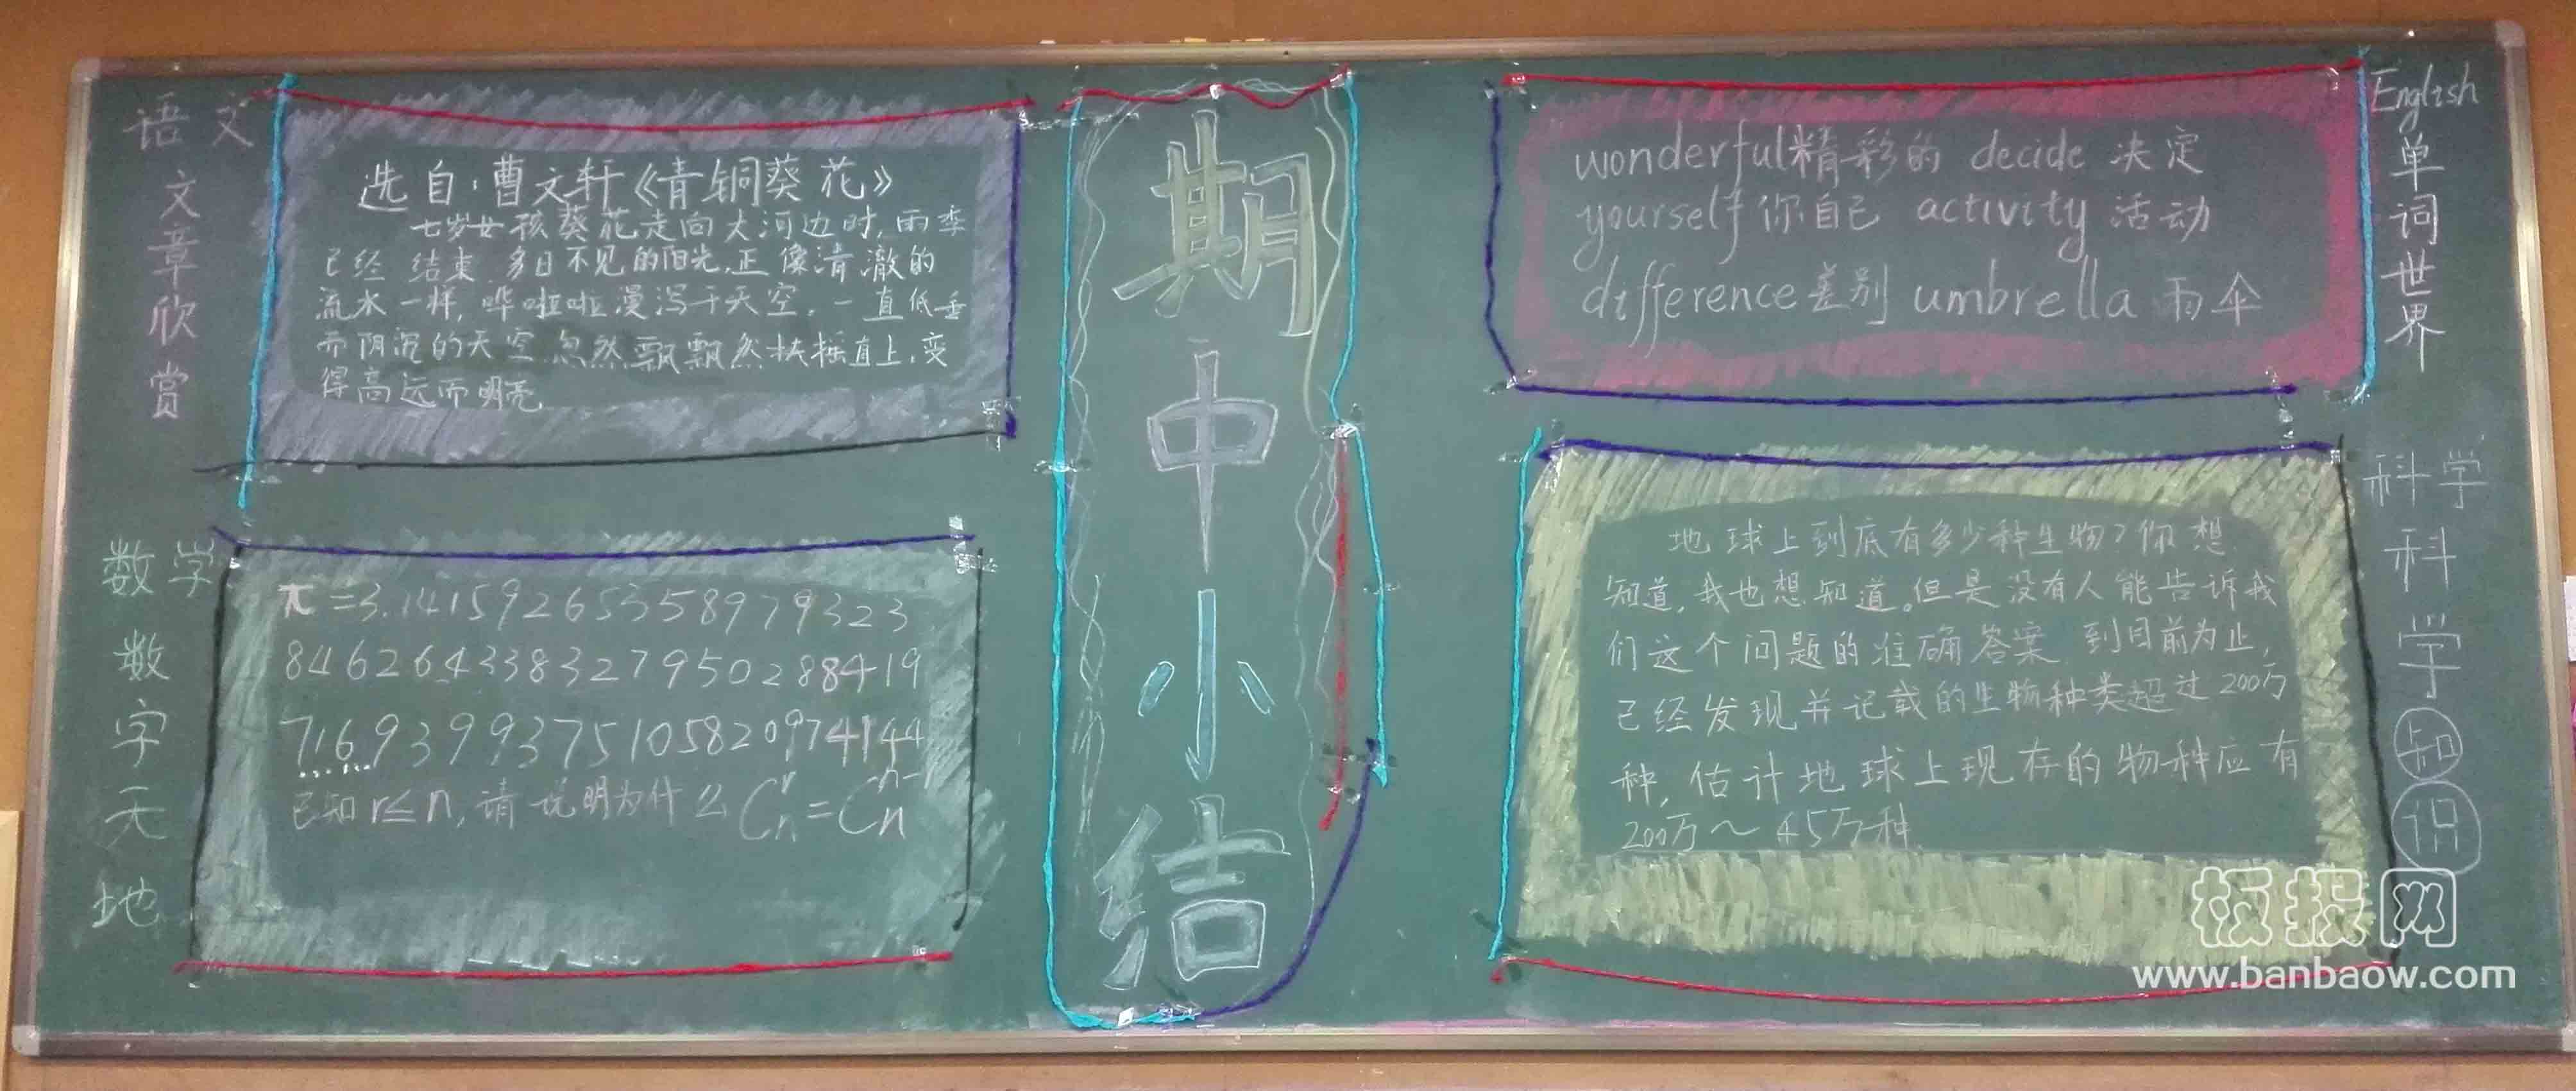 语文
文章欣赏
选自:曹文轩《青铜葵花》
七岁女孩葵花走向大河边时,雨季
已经 结束 多日不见的阳光,正像清澈的
流水一样,哗啦啦漫泻于天空。一直低垂
而阴沉的天空 忽然飘飘然扶摇直上,变
得高远而明亮
数学
数字天地
π=3.141592653358979323
846264338327950288419
716939937510582097414 4
已知r≤n,请说明为什么 Cₙʳ=Cₙⁿ⁻ʳ
期中小结
English
单词世界
wonderful精彩的 decide 决定
yourself你自己 activity 活动
difference差别 umbrella 雨伞
科学
科学知识
地球上到底有多少种生物?你想
知道,我也想知道。但是没有人能告诉我
们这个问题的准确答案 到目前为止,
已经发现并记载的生物种类超过200万
种,估计地球上现存的物种应有
200万~45万种
板报网
www.banbaow.com